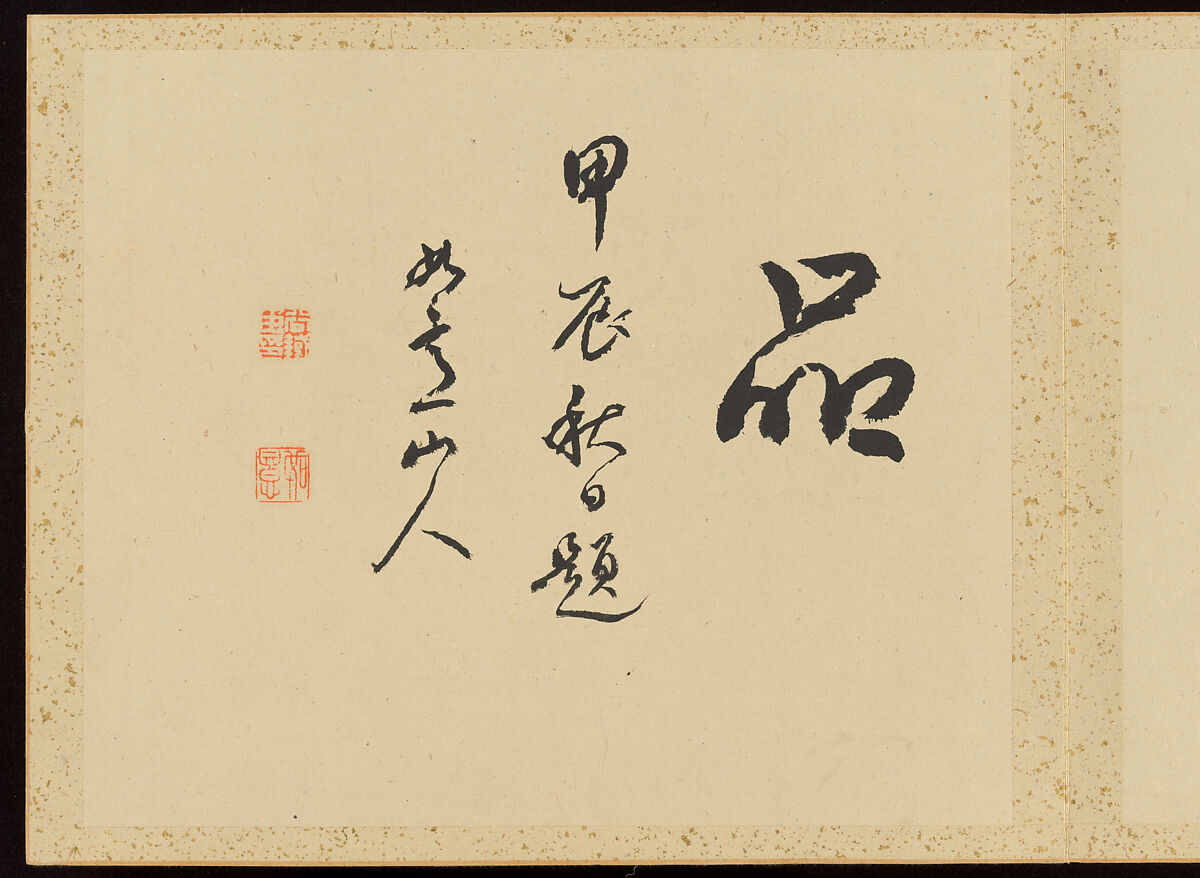 品
甲辰秋日題
如意山人
如意